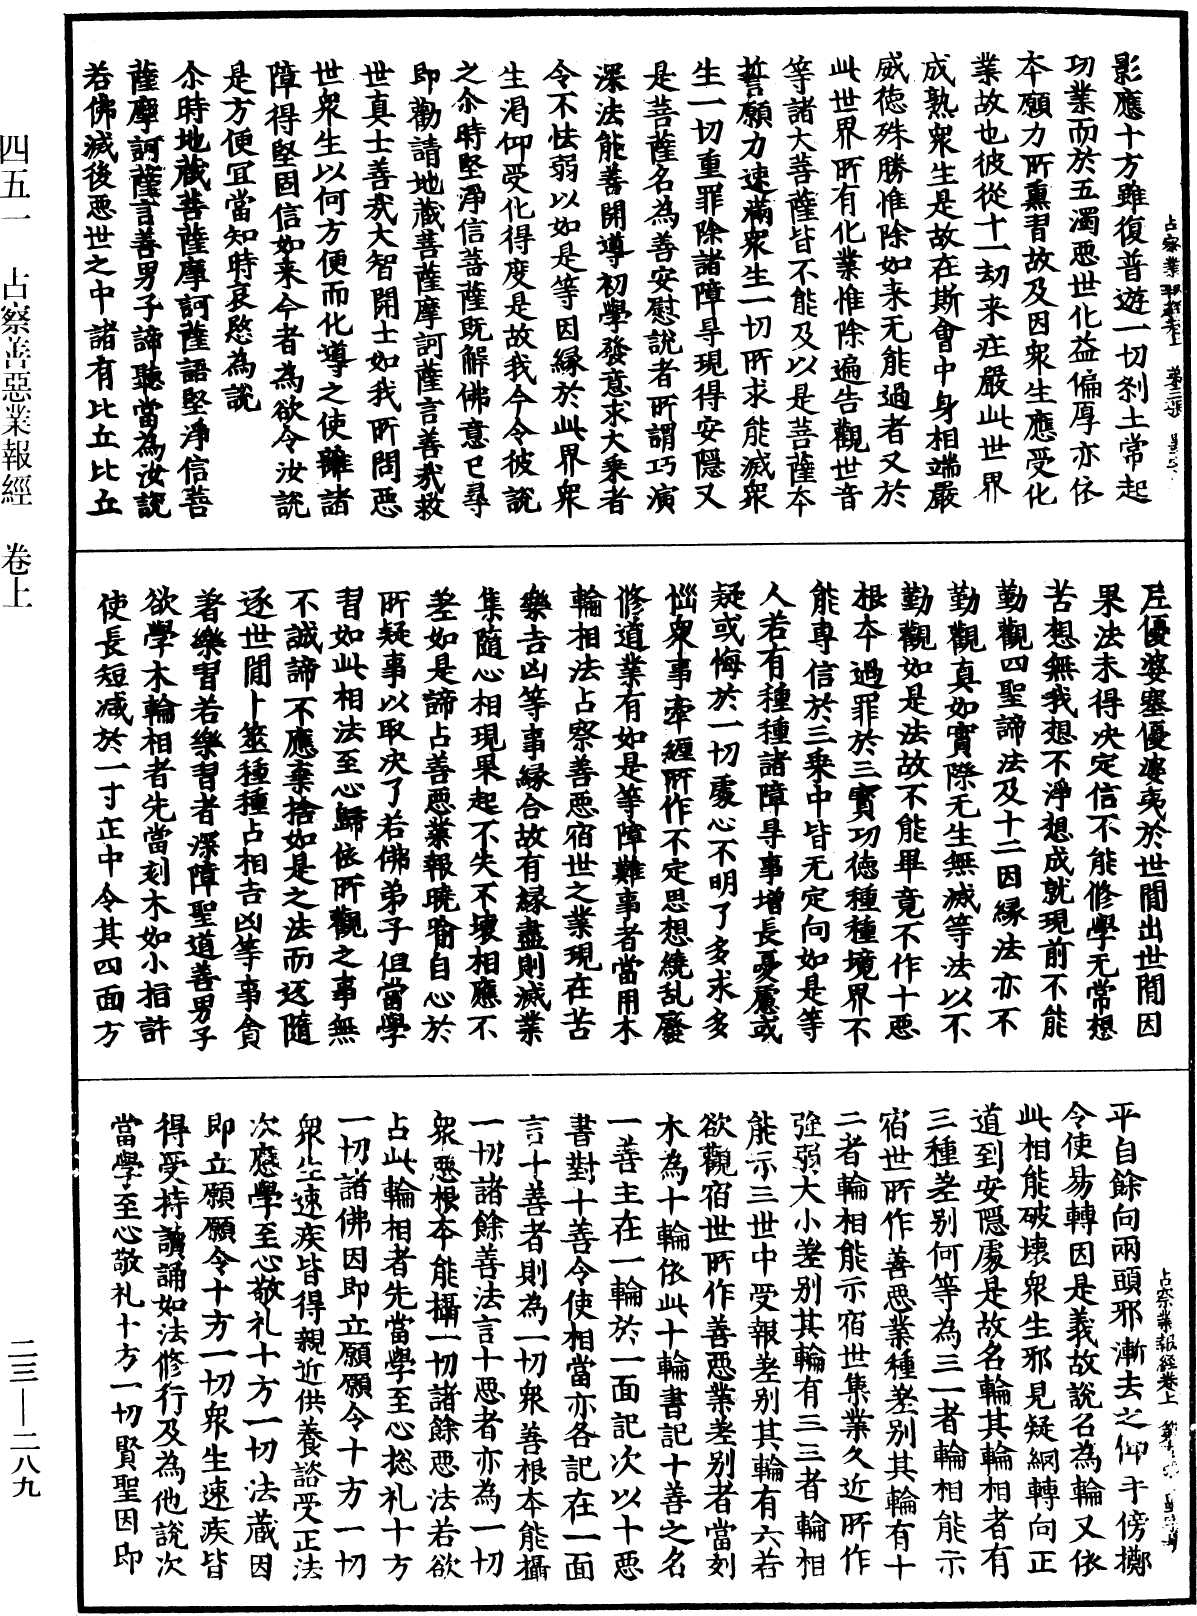 影應十方雖復普遊一切刹土常起
功業而於五濁惡世化益偏厚亦依
本願力所熏習故及因衆生應受化
業故也彼從十一劫來莊嚴此世界
成熟衆生是故在斯會中身相端嚴
威德殊勝惟除如来无能過者又於
此世界所有化業惟除遍吉觀世音
等諸大菩薩皆不能及以是菩薩本
誓願力速滿衆生一切所求能滅衆
生一切重罪除諸障㝵現得安隱又
是菩薩名為善安慰說者所謂巧演
深法能善開導初學發意求大乗者
令不怯弱以如是等因緣於此界衆
生渴仰受化得度是故我今令彼說
之尒時堅淨信菩薩既解佛意已尋
即勸請地藏菩薩摩訶薩言善哉救
世真士善哉大智開士如我所問惡
世衆生以何方便而化導之使離諸
障得堅固信如来今者為欲令汝說
是方便冝當知時哀愍為說
尒時地藏菩薩摩訶薩語堅淨信菩
薩摩訶薩言善男子諦聽當為汝說
若佛滅後惡世之中諸有比丘比丘
尼優婆塞優婆夷於世間出世間因
果法未得决定信不能修學无常想
苦想無我想不淨想成就現前不能
勤觀四聖諦法及十二因緣法亦不
勤觀真如實際无生無滅等法以不
勤觀如是法故不能畢竟不作十惡
根本過罪於三寳功德種種境界不
能專信於三乗中皆无定向如是等
人若有種種諸障㝵事增長憂慮或
疑或悔於一切處心不明了多求多
惱衆事牽纏所作不定思想繞乱廢
修道業有如是等障難事者當用木
輪相法占察善惡宿世之業現在苦
樂吉凶等事緣合故有緣盡則滅業
集隨心相現果起不失不壞相應不
差如是諦占善惡業報曉喻自心於
所疑事以取决了若佛弟子但當學
習如此相法至心歸依所觀之事無
不誠諦不應棄捨如是之法而返隨
逐世間卜筮種種占相吉凶等事貪
著樂習若樂習者深障聖道善男子
欲學木輪相者先當刻木如小指許
使長短减於一寸正中令其四面方
平自餘向兩頭邪漸去之仰手傍擲
令使易轉因是義故說名為輪又依
此相能破壞衆生邪見疑網轉向正
道到安隱處是故名輪其輪相者有
三種差别何等為三一者輪相能示
宿世所作善惡業種差别其輪有十
二者輪相能示宿世集業久近所作
强弱大小差别其輪有三三者輪相
能示三世中受報差别其輪有六若
欲觀宿世所作善惡業差别者當刻
木為十輪依此十輪書記十善之名
一善主在一輪於一面記次以十惡
書對十善令使相當亦各記在一面
言十善者則為一切衆善根本能攝
一切諸餘善法言十惡者亦為一切
衆惡根本能攝一切諸餘惡法若欲
占此輪相者先當學至心揔礼十方
一切諸佛因即立願願令十方一切
衆生速疾皆得親近供養諮受正法
次應學至心敬礼十方一切法藏因
即立願願令十方一切衆生速疾皆
得受持讀誦如法修行及為他說次
當學至心敬礼十方一切賢聖因即
四五一　占察善惡業報經　卷上
二三—二八九